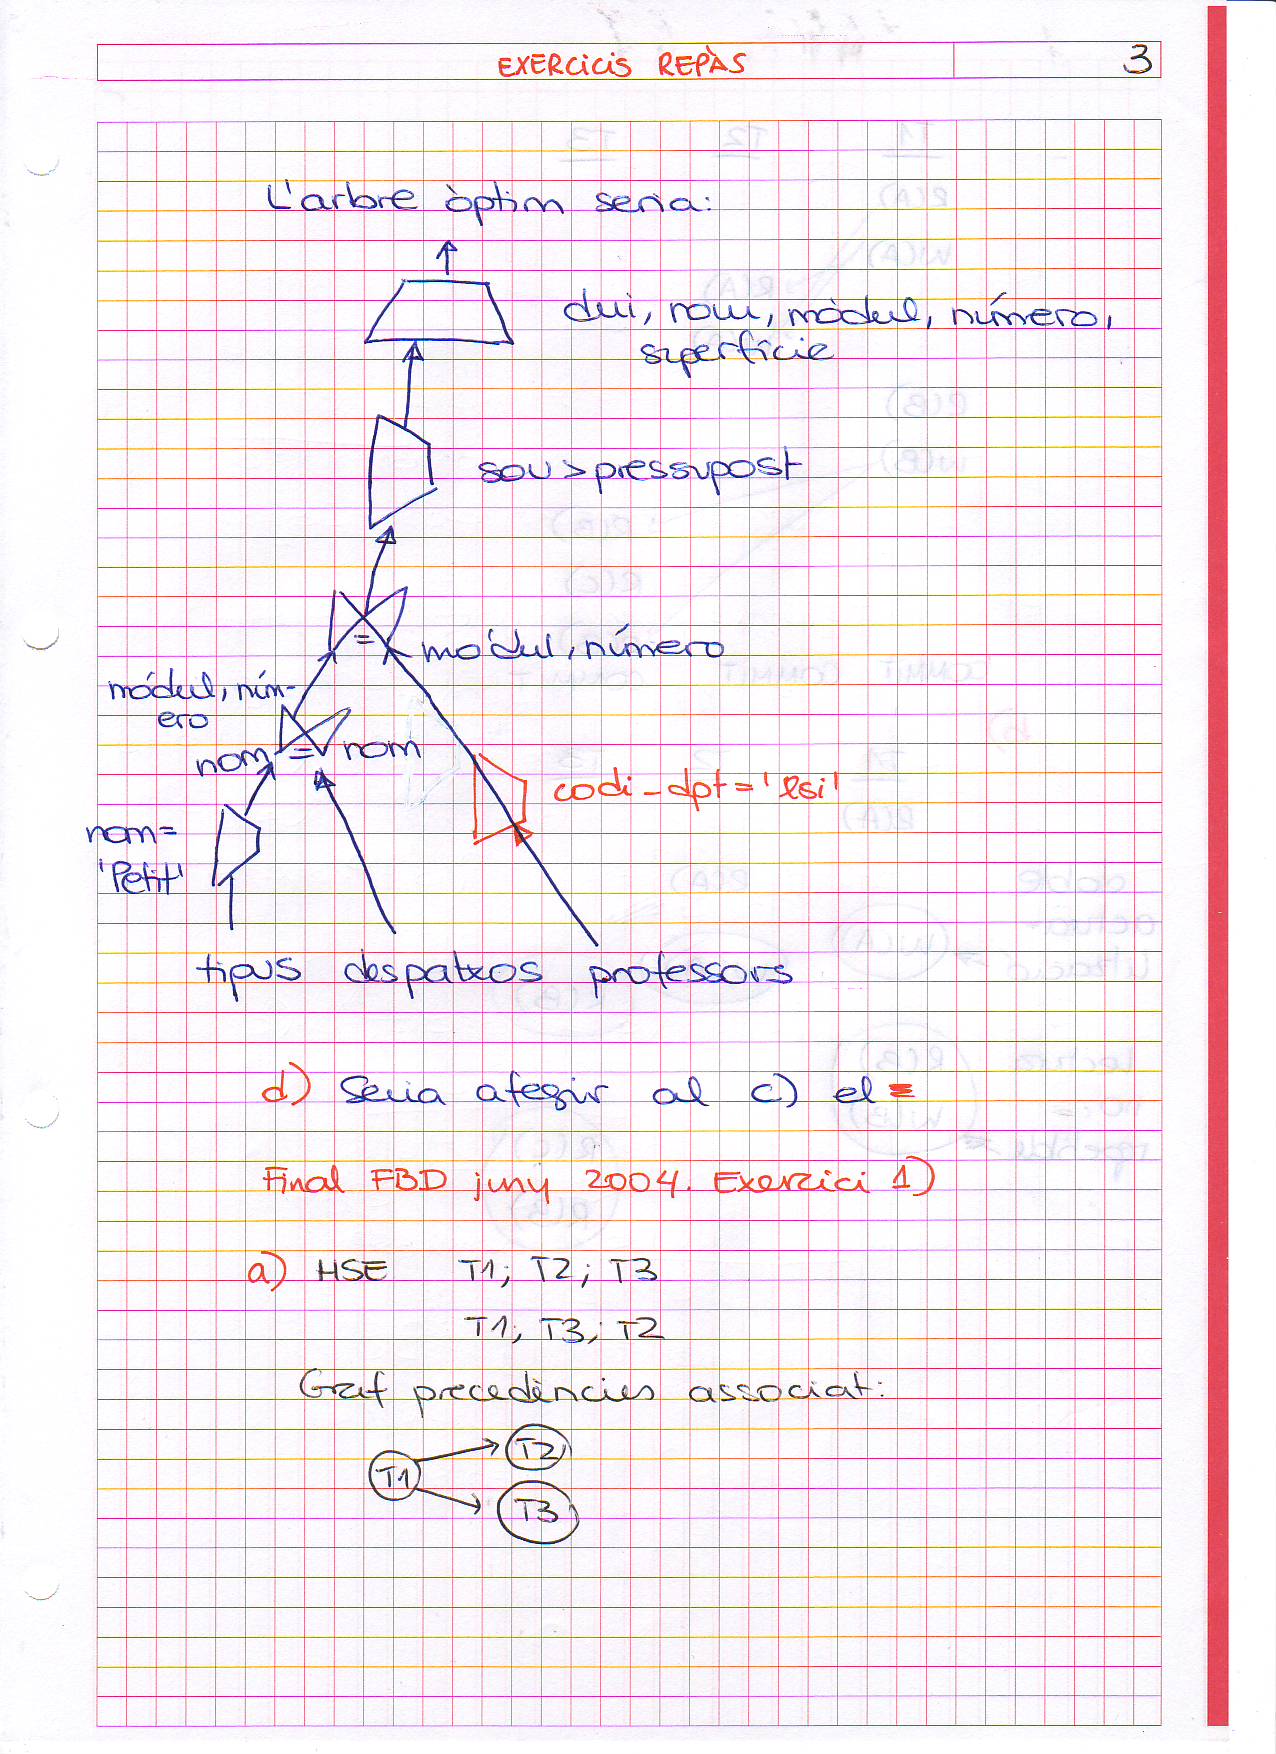 EXERCICIS REPÀS 3
L'arbre òptim seria:
dni, nom, mòdul, número,
superfície
sou > pressupost
=
mòdul, número
mòdul, núm-
ero
nom = nom
codi_dpt = 'lsi'
nom =
'Petit'
tipus despatxos professors
d) Seria afegir al c) el
Final FBD juny 2004. Exercici 1)
a) HSE T1; T2; T3
T1; T3; T2
Graf precedències associat:
T2
T1
T3